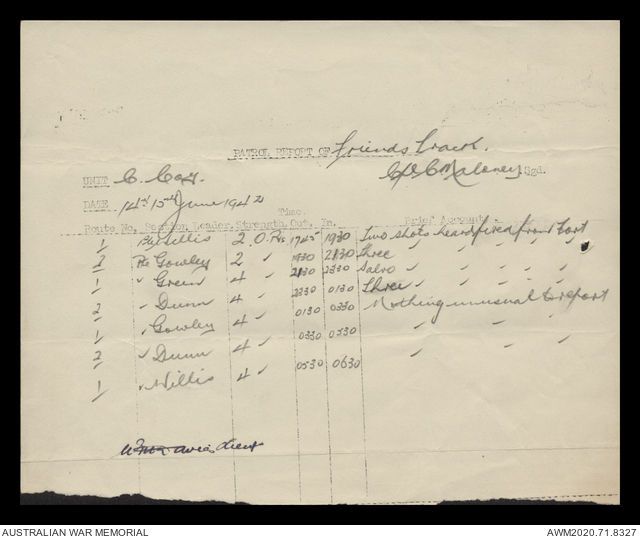 PATROL REPORT OF Friends Track.
UNIT C. Coy. Cpl C Maloney Sgd.
DATE 14th 15th June 1942
Time.
Route No. Section Leader. Strength Out. In. Brief Account.
1 Pte Willis 2 O.Rs 1745 1930 Two shots heard fired from Fort
2 Pte Gowley 2 " 1930 2130 Three " " " " "
1 " Green 4 " 2130 2330 Salvo " " " "
2 " Dunn 4 " 2330 0130 Three " " " "
1 " Gowley 4 " 0130 0330 Nothing unusual to report
2 " Dunn 4 " 0330 0530 " " "
1 " Willis 4 " 0530 0630 " "
Lieut
AUSTRALIAN WAR MEMORIAL AWM2020.71.8327